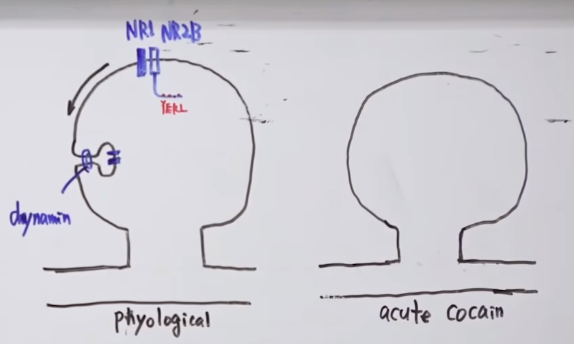 NR1 NR2B
YEKL
dnynamin
phyological
acute cocain